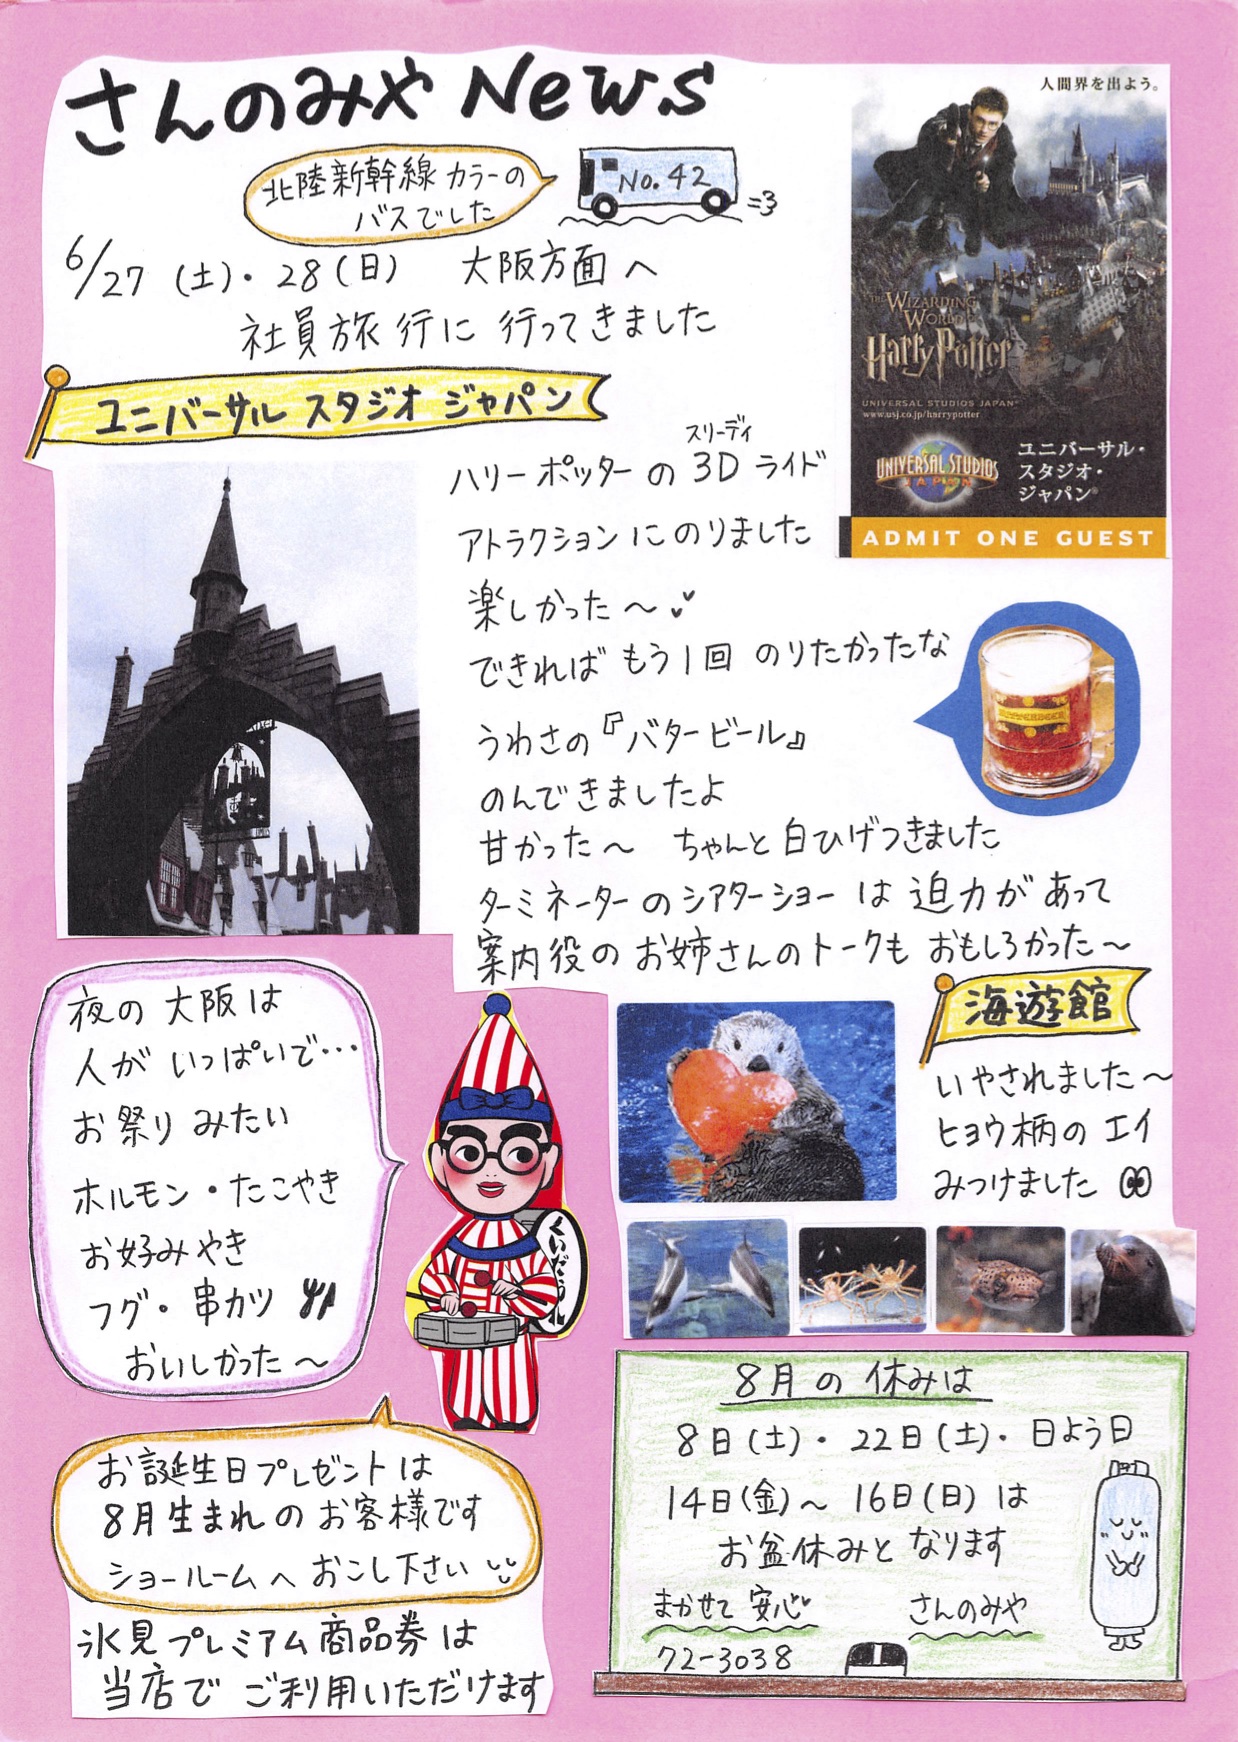 さんのみや News
北陸新幹線カラーの
バスでした
No. 42
6/27 (土)・28(日) 大阪方面へ
社員旅行に行ってきました
人間界を出よう。
THE
WIZARDING
WORLD OF
Harry Potter
UNIVERSAL STUDIOS JAPAN
www.usj.co.jp/harrypotter
UNIVERSAL STUDIOS
JAPAN
ユニバーサル・
スタジオ・
ジャパン®
ADMIT ONE GUEST
ユニバーサル スタジオ ジャパン
スリーディ
ハリーポッターの 3D ライド
アトラクションにのりました
楽しかった～
できればもう1回 のりたかったな
うわさの『バタービール』
のんできましたよ
甘かった～ ちゃんと白ひげつきました
ターミネーターのシアターショーは迫力があって
案内役のお姉さんのトークもおもしろかった～
夜の大阪は
人がいっぱいで…
お祭りみたい
ホルモン・たこやき
お好みやき
フグ・串カツ
おいしかった～
くいだおれ
海遊館
いやされました～
ヒョウ柄のエイ
みつけました
お誕生日プレゼントは
8月生まれのお客様です
ショールームへおこし下さい
氷見プレミアム商品券は
当店でご利用いただけます
8月の休みは
8日(土)・22日(土)・日よう日
14日(金)～16日(日)は
お盆休みとなります
まかせて安心 さんのみや
72-3038